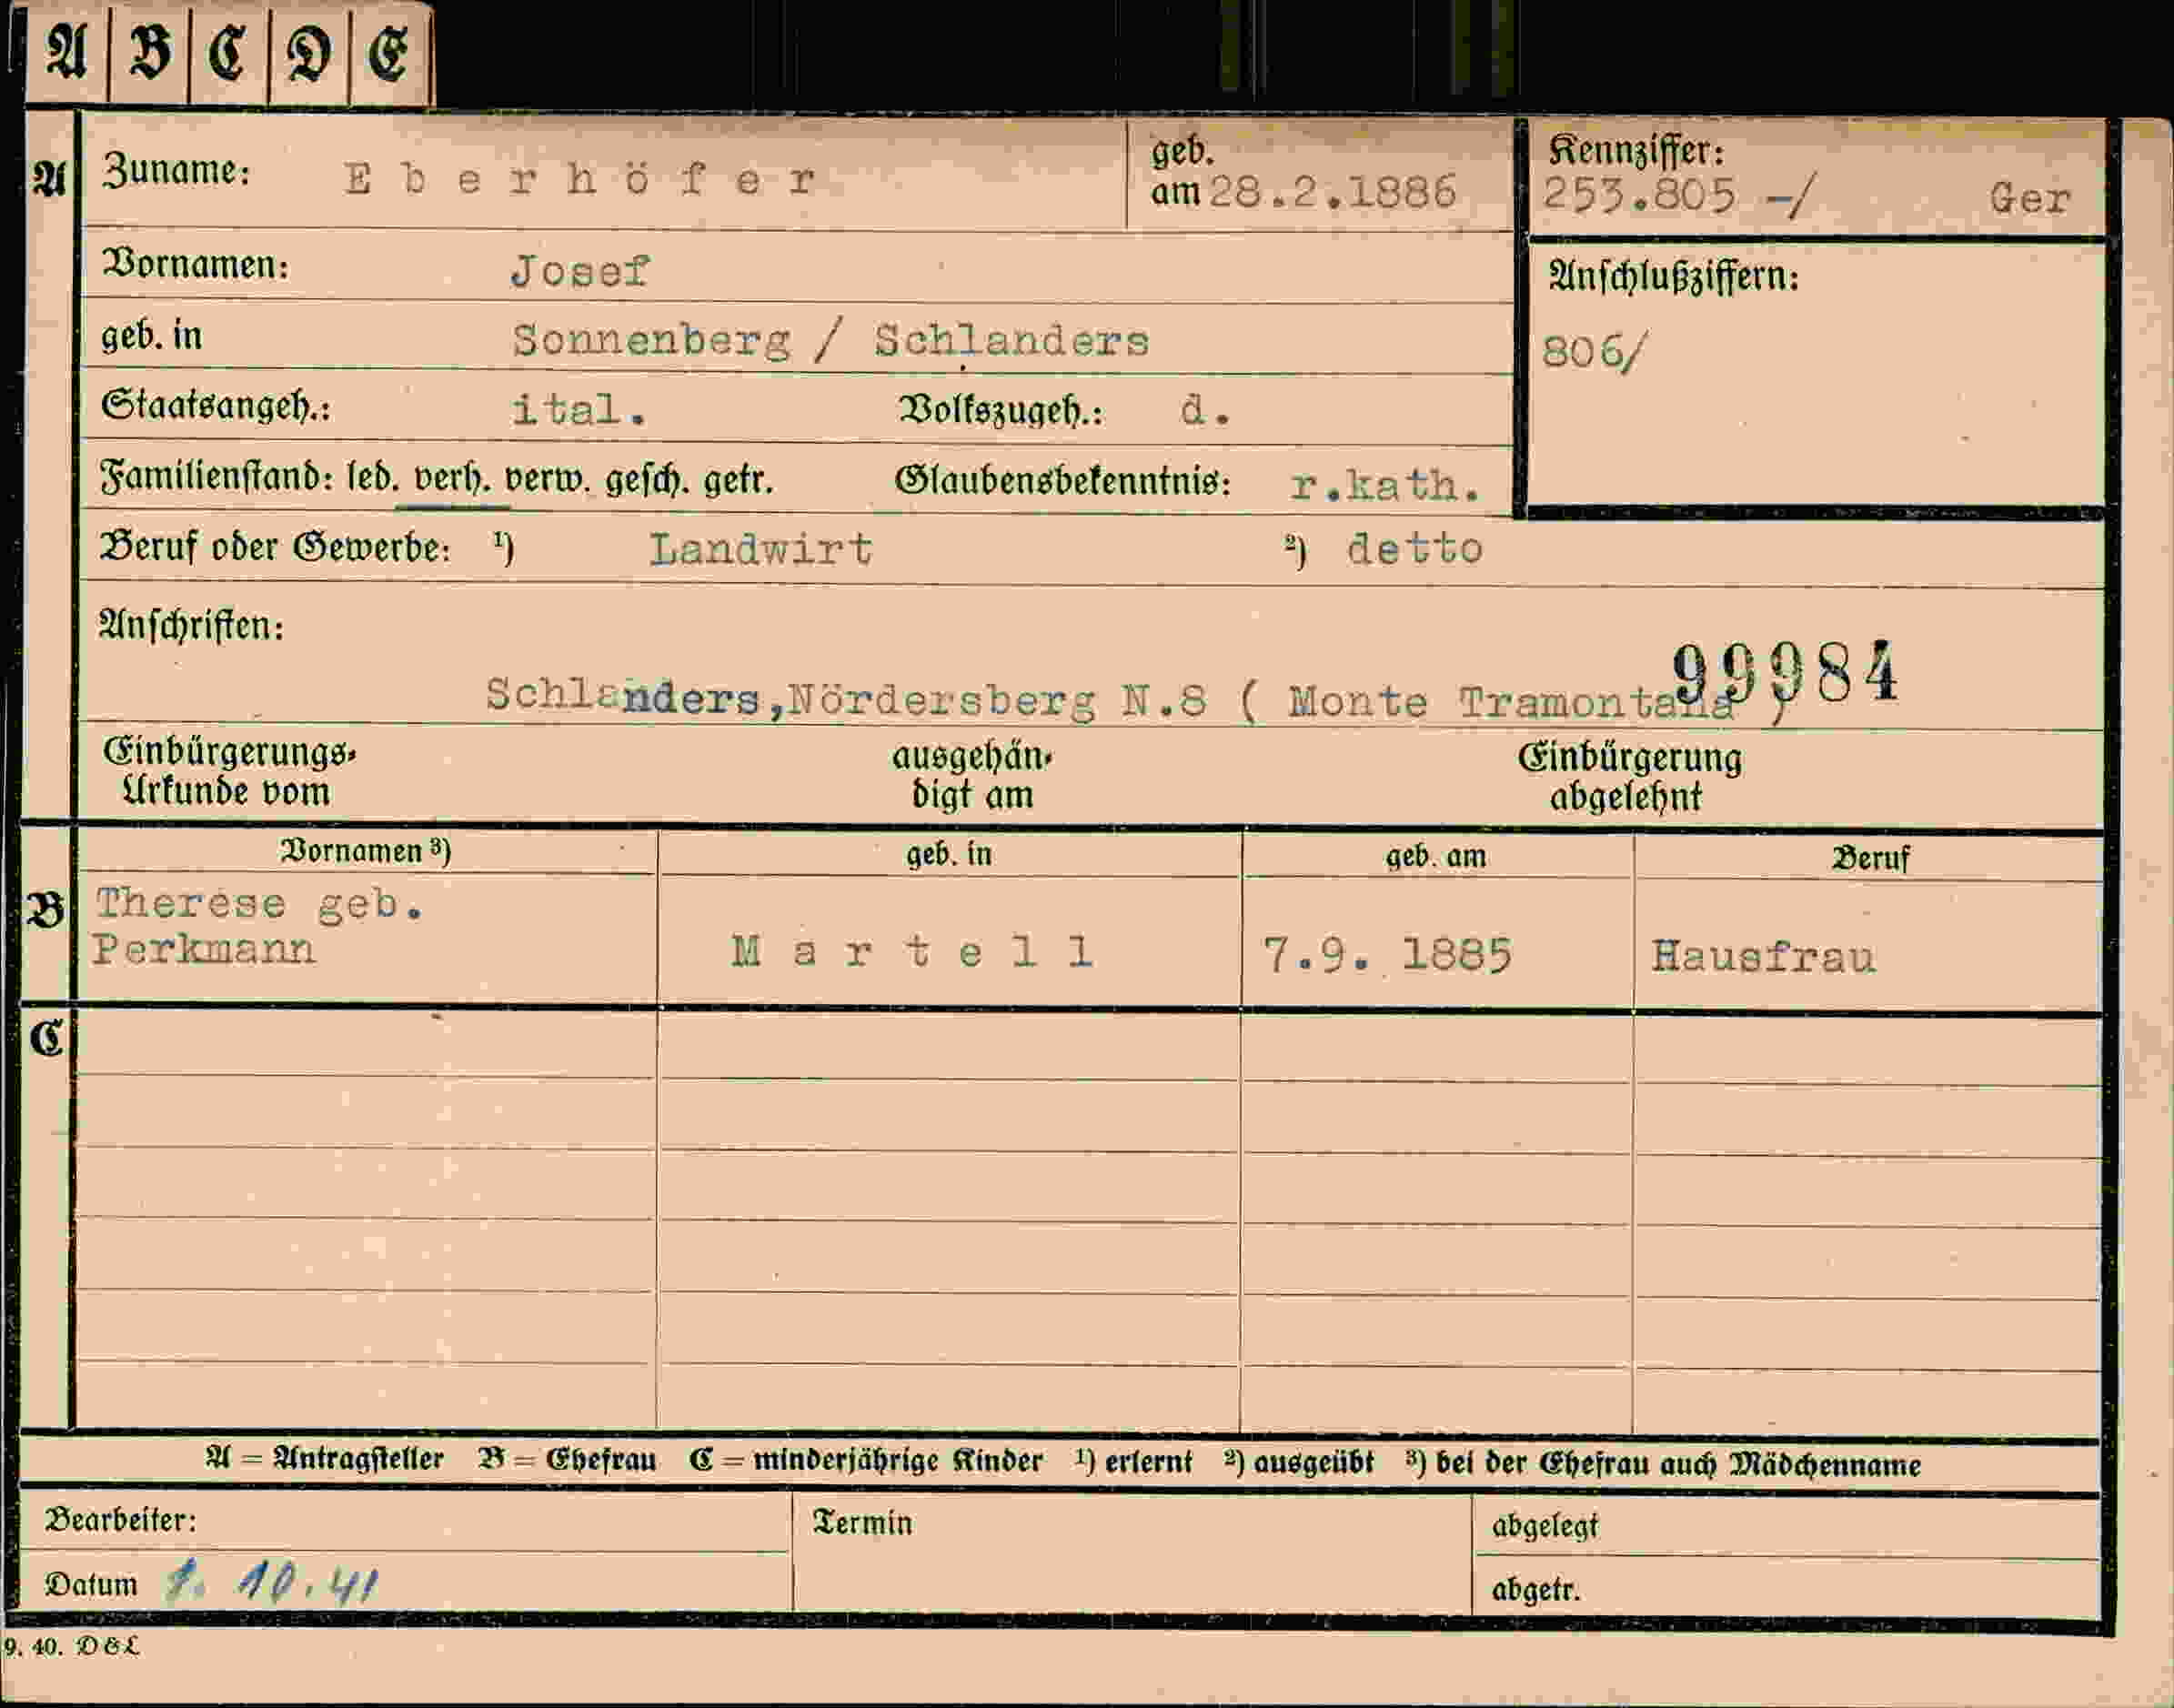 A B C D E
A Zuname: Eberhöfer geb. am 28.2.1886 Kennziffer: 253.805 -/ Ger
Vornamen: Josef Anschlußziffern:
geb. in Sonnenberg / Schlanders 806/
Staatsangeh.: ital. Volkszugeh.: d.
Familienstand: led. verh. verw. gesch. getr. Glaubensbekenntnis: r.kath.
Beruf oder Gewerbe: ¹) Landwirt ²) detto
Anschriften:
99984
Schlanders,Nördersberg N.8 ( Monte Tramontana )
Einbürgerungs- ausgehän- Einbürgerung
Urkunde vom digt am abgelehnt
Vornamen ³) geb. in geb. am Beruf
B Therese geb.
Perkmann Martell 7.9. 1885 Hausfrau
C
A = Antragsteller B = Ehefrau C = minderjährige Kinder ¹) erlernt ²) ausgeübt ³) bei der Ehefrau auch Mädchenname
Bearbeiter: Termin abgelegt
Datum 1. 10. 41 abgetr.
9. 40. D&L